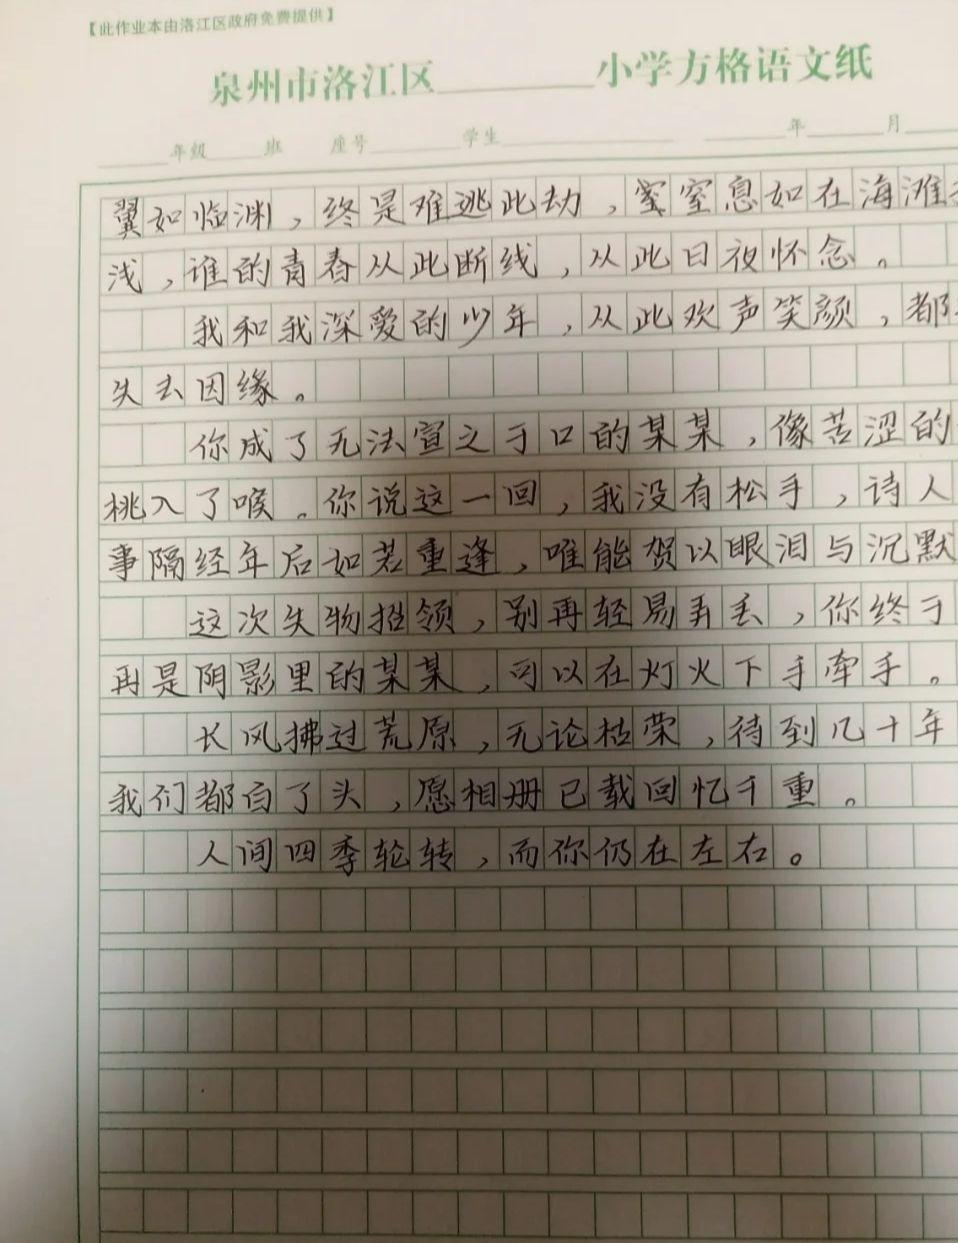 【此作业本由洛江区政府免费提供】
泉州市洛江区________小学方格语文纸
____年级____班 座号______学生____________ ______年______月____
翼如临渊，终是难逃此劫，窒息如在海滩
浅，谁的青春从此断线，从此日夜怀念。
我和我深爱的少年，从此欢声笑颜，都
失去因缘。
你成了无法宣之于口的某某，像苦涩的
桃入了喉。你说这一回，我没有松手，诗人
事隔经年后如若重逢，唯能贺以眼泪与沉默
这次失物招领，别再轻易弄丢，你终于
再是阴影里的某某，可以在灯火下手牵手。
长风拂过荒原，无论枯荣，待到几十年
我们都白了头，愿相册已载回忆千重。
人间四季轮转，而你仍在左右。